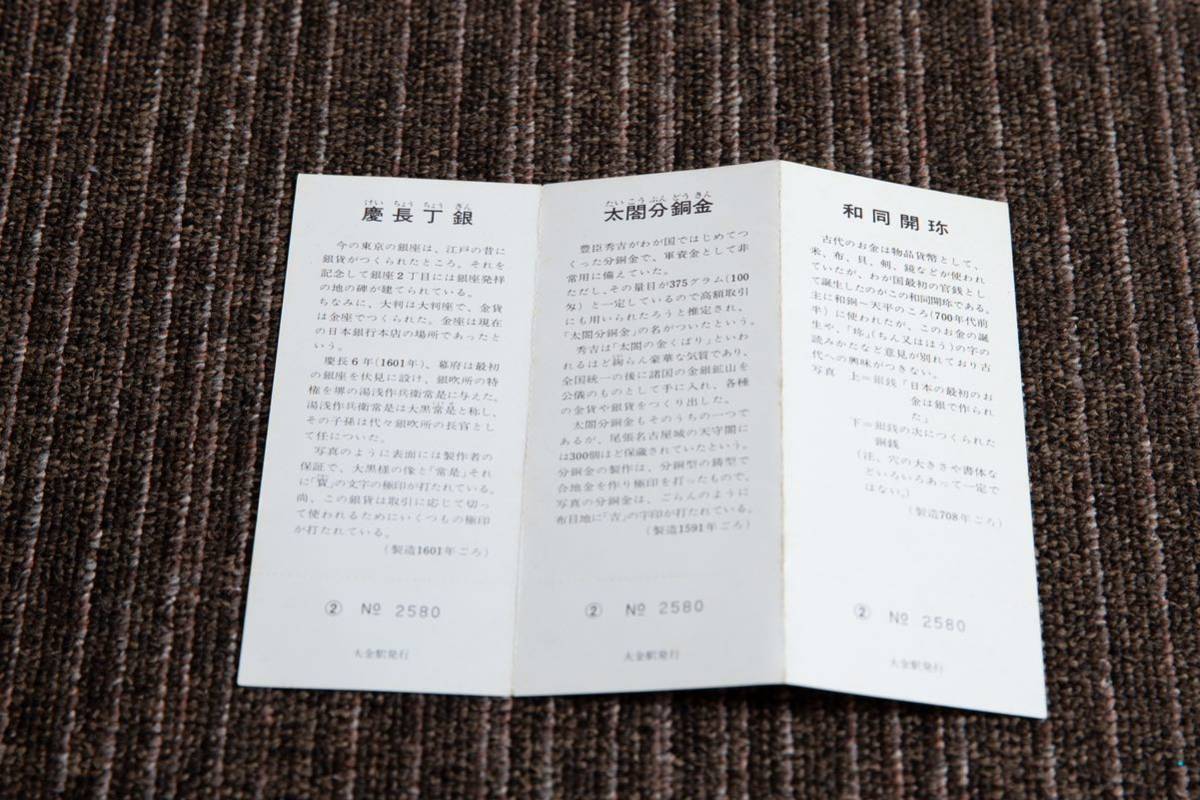 けい ちょう ちょう ぎん
慶長丁銀
今の東京の銀座は、江戸の昔に
銀貨がつくられたところ。それを
記念して銀座2丁目には銀座発祥
の地の碑が建てられている。
ちなみに、大判は大判座で、金貨
は金座でつくられた。金座は現在
の日本銀行本店の場所であったと
いう。
慶長6年(1601年)、幕府は最初
の銀座を伏見に設け、銀吹所の特
権を堺の湯浅作兵衛常是に与えた。
湯浅作兵衛常是は大黒常是と称し、
その子孫は代々銀吹所の長官とし
て任についた。
写真のように表面には製作者の
保証で、大黒様の像と「常是」それ
に「寳」の文字の極印が打たれている。
尚、この銀貨は取引に応じて切っ
て使われるためにいくつもの極印
が打たれている。
(製造1601年ごろ)
② № 2580
大金駅発行
たい こう ぶん どう きん
太閤分銅金
豊臣秀吉がわが国ではじめてつ
くった分銅金で、軍資金として非
常用に備えていた。
ただし、その量目が375グラム(100
匁)と一定しているので高額取引
にも用いられたろうと推定され、
「太閤分銅金」の名がついたという。
秀吉は「太閤の金くばり」といわ
れるほど絢らん豪華な気質であり、
全国統一の後に諸国の金銀鉱山を
公儀のものとして手に入れ、各種
の金貨や銀貨をつくり出した。
太閤分銅金もそのうちの一つで
あるが、尾張名古屋城の天守閣に
は300個ほど保蔵されていたという。
分銅金の製作は、分銅型の鋳型で
合地金を作り極印を打ったもので、
写真の分銅金は、ごらんのように
布目地に「吉」の字印が打たれている。
(製造1591年ごろ)
② № 2580
大金駅発行
和同開珎
古代のお金は物品貨幣として、
米、布、貝、剣、鏡などが使われ
ていたが、わが国最初の官銭とし
て誕生したのがこの和同開珎である。
主に和銅〜天平のころ(700年代前
半)に使われたが、このお金の誕
生や、「珎」(ちん又はほう)の字の
読みかたなど意見が別れており古
代への興味がつきない。
写真 上=銀銭「日本の最初のお
金は銀で作られ
た」
下=銀銭の次につくられた
銅銭
(注、穴の大きさや書体な
どいろいろあって一定で
はない。)
(製造708年ごろ)
② № 2580
大金駅発行